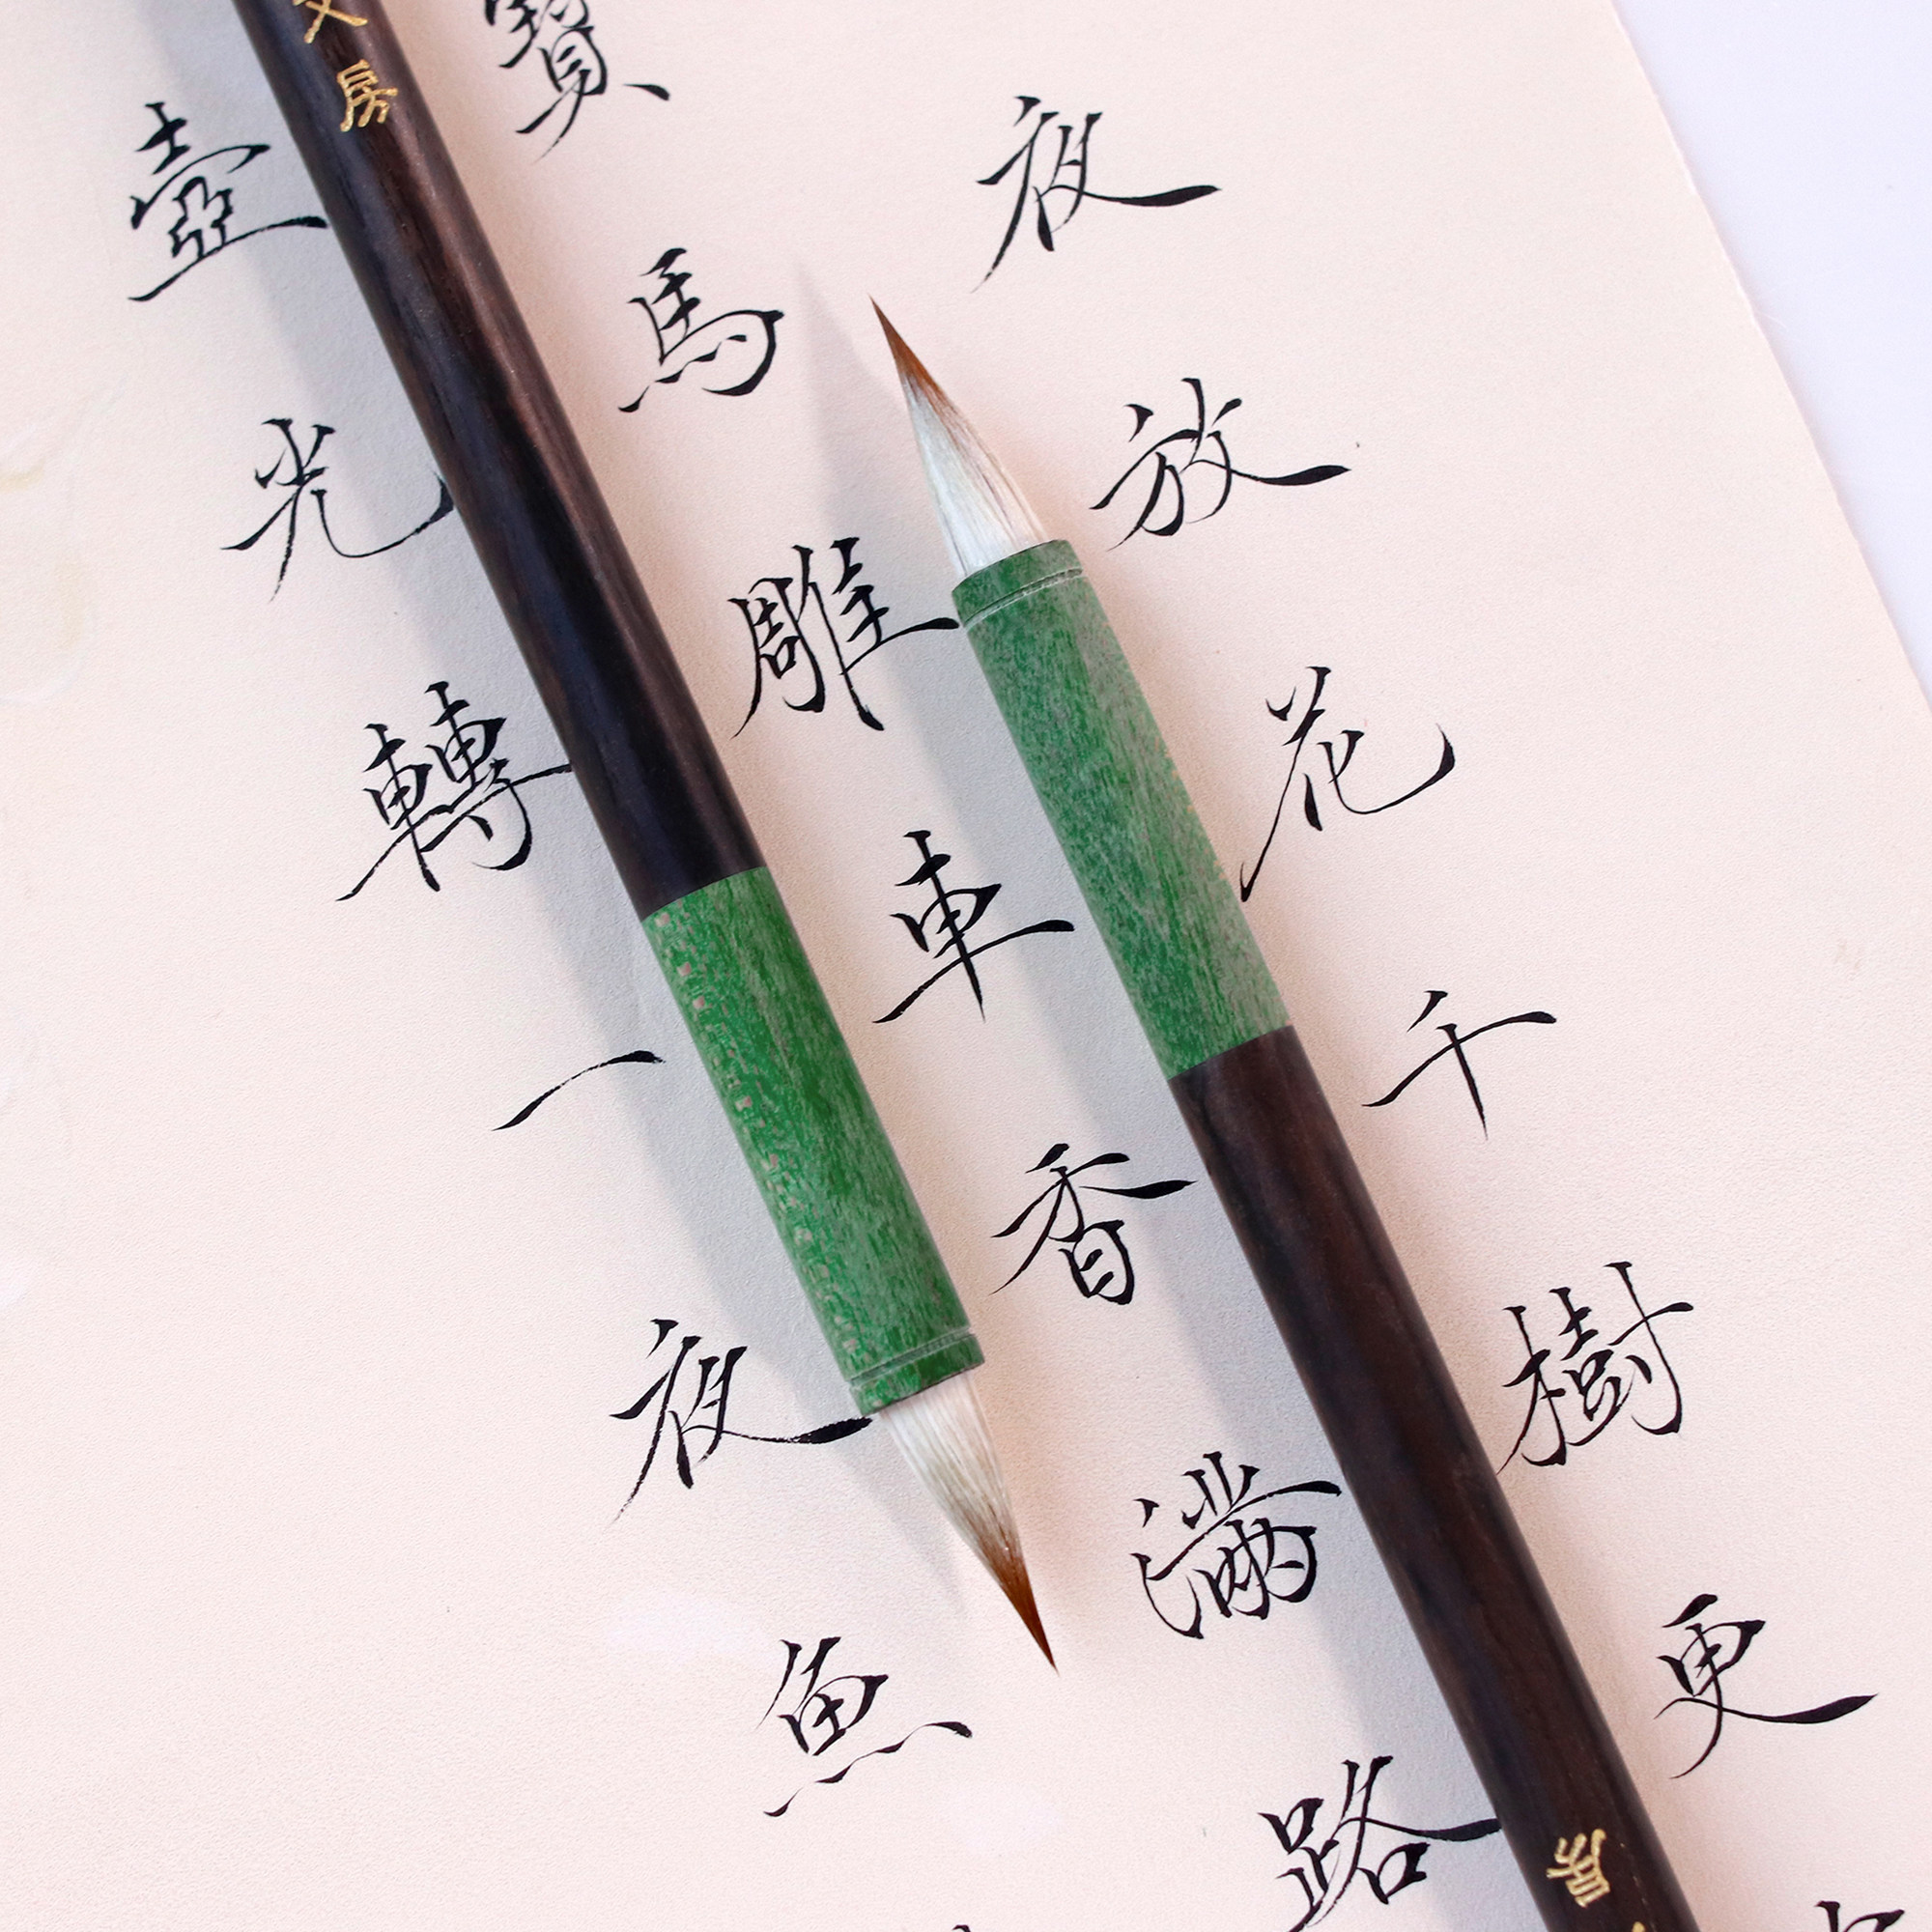 夜放花千樹更
寶馬雕車香滿路
壺光轉一夜魚
文房
房